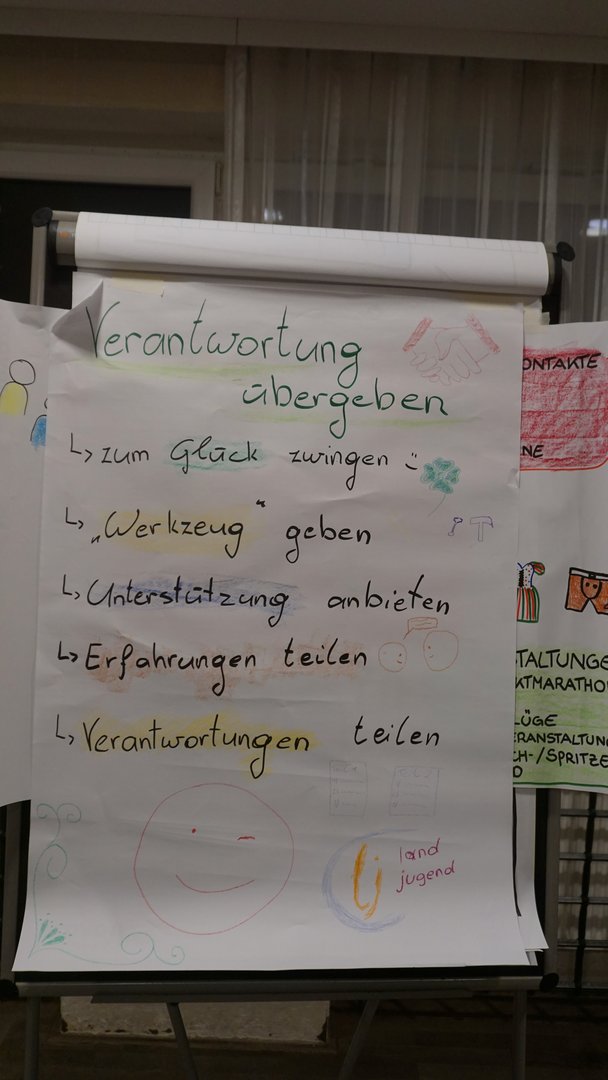 Verantwortung
übergeben
↳ zum Glück zwingen :)
↳ „Werkzeug“ geben
↳ Unterstützung anbieten
↳ Erfahrungen teilen
↳ Verantwortungen teilen
lj land
jugend
ONTAKTE
NE
TALTUNGE
KTMARATHO
LÜGE
ERANSTALTUN
CH-/SPRITZE
D